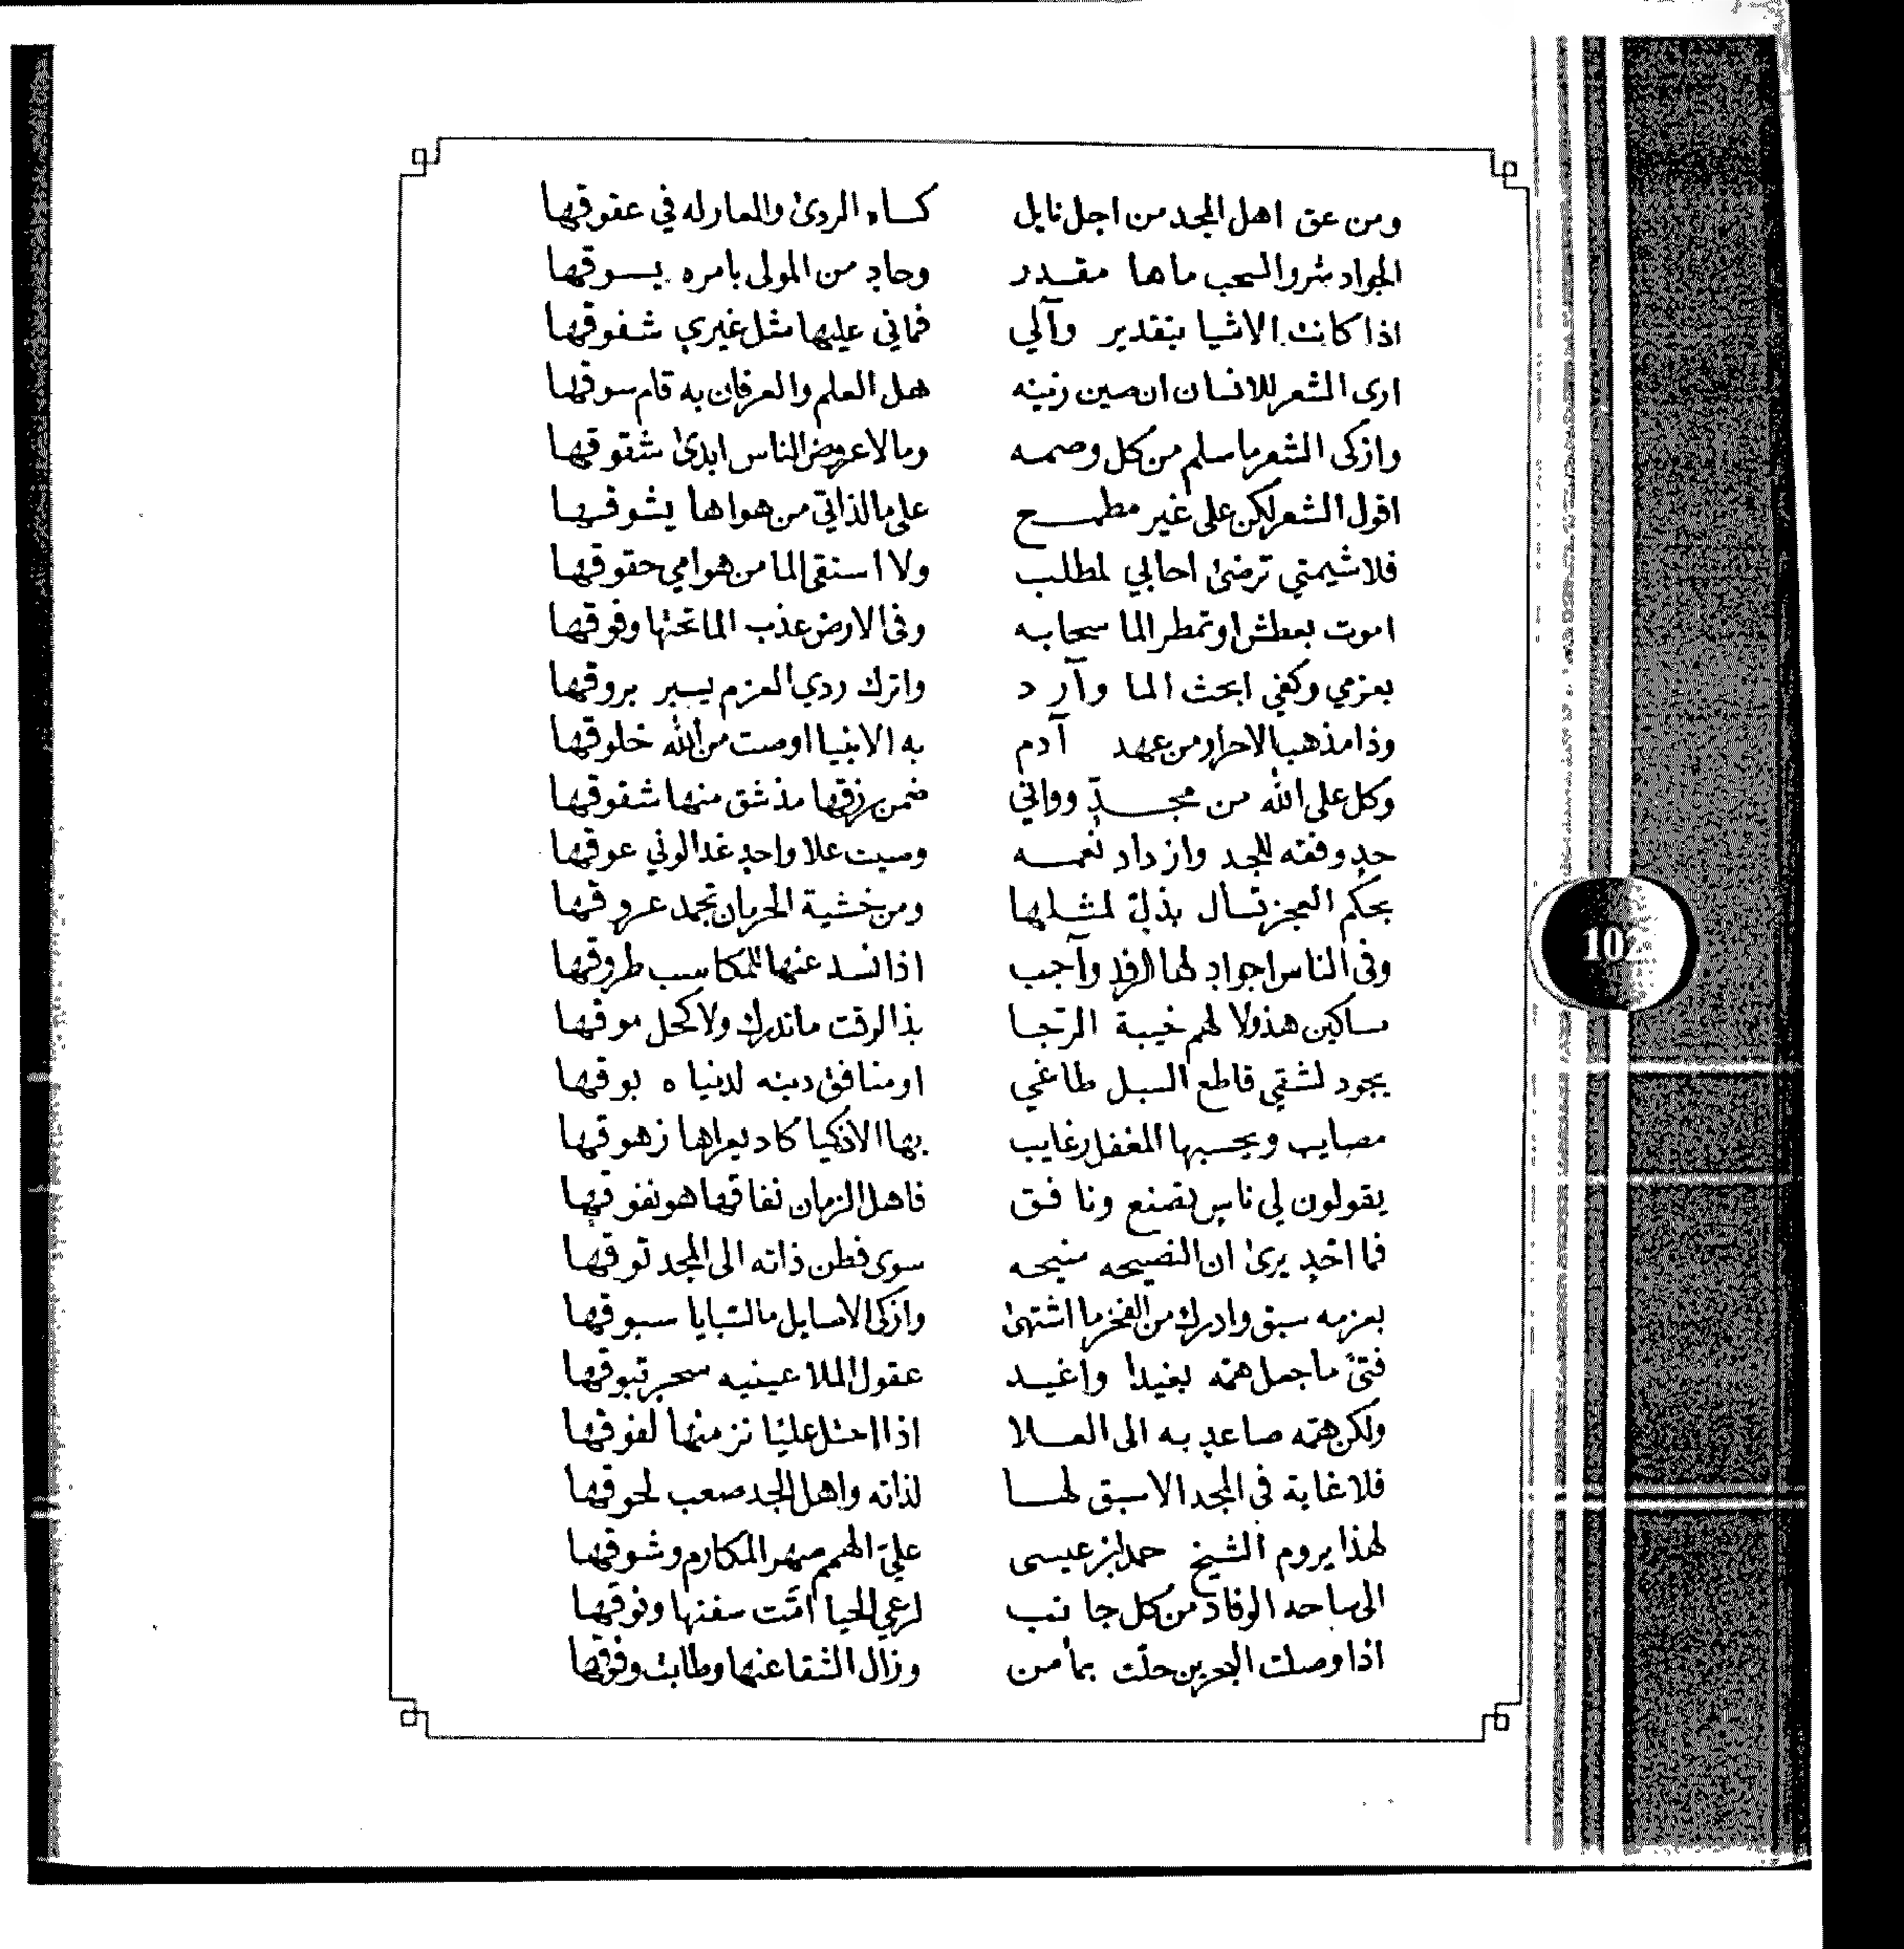 ومن عق اهل المجد من اجل نايل كساه الردئ والعار له في عقوقها
الجواد شروا السحب ماها مقدر وحادٍ من المولى بامره يسوقها
اذا كانت الاشيا بتقدير وآلي فماني عليها مثل غيري شفوقها
ارى الشعر للانسان ان صين زينه هل العلم والعرفان به قام سوقها
وازكى الشعر ما سلم من كل وصمه ومالاعروض الناس ابدئ شقوقها
اقول الشعر لكن على غير مطمح على مالذاتي من هواها يشوقها
فلا شيمتي ترضئ احابي لمطلب ولا استقي الما من هوامي حقوقها
اموت بعطش او تمطر الما سحابه وفي الارض عذب الما تحتها وفوقها
بعزمي وكفي ابحث الما وآرد واترك ردي العزم يسبر بروقها
وذا مذهب الاحرار من عهد آدم به الانبيا اوصت من الله خلوقها
وكل على الله من مجدٍّ وواني ضمن رزقها مذ شق منها شفوقها
حدٍ وفقه للجد وازداد نعمه وسيت علا واحدٍ غدا لوني عوقها
بحكم العجز تسال بذلٍّ لمثلها ومن خشية الحرمان تجمد عروقها
وفي الناس اجوادٍ لها الرفد وآجب اذا نسد عنها للمكاسب طروقها
مساكين هذولا لهم خيبة الرتجا بذا الوقت ماتدرك ولا كحل موقها
يجود لشقي قاطع السبل طاغي او منافق دينه لدنياه بوقها
مصايب ويحسبها المغفل رغايب بها الاذكيا كاد يعراها زهوقها
يقولون لي ناسٍ تصنع ونافق فاهل الزمان نفاقها هو نفوقها
فما احدٍ يرئ ان النصيحه منيحه سوى فطن ذاته الى المجد توقها
بعزمه سبق وادرك من الفخر ما اشتهئ وازكى الاسايل مالشبايا سبوقها
فتئ ما جعل همّه بغيدا واغيد عقول الملا عينيه سحرٍ تبوقها
ولكن همّه صاعدٍ به الى العلا اذا احتل عليًا نز منها لفوقها
فلا غاية في المجد الا سبق لها لذاته واهل الجد صعب لحوقها
لهذا يروم الشيخ حمد بن عيسى عليّ الهمم صهر المكارم وشوقها
الى ساحه الوفاد من كل جانب لرعي الحيا امّت سفنها ونوقها
اذا وصلت البحرين حلّت بمأمن وزال الشقا عنها وطابت وفوقها
102